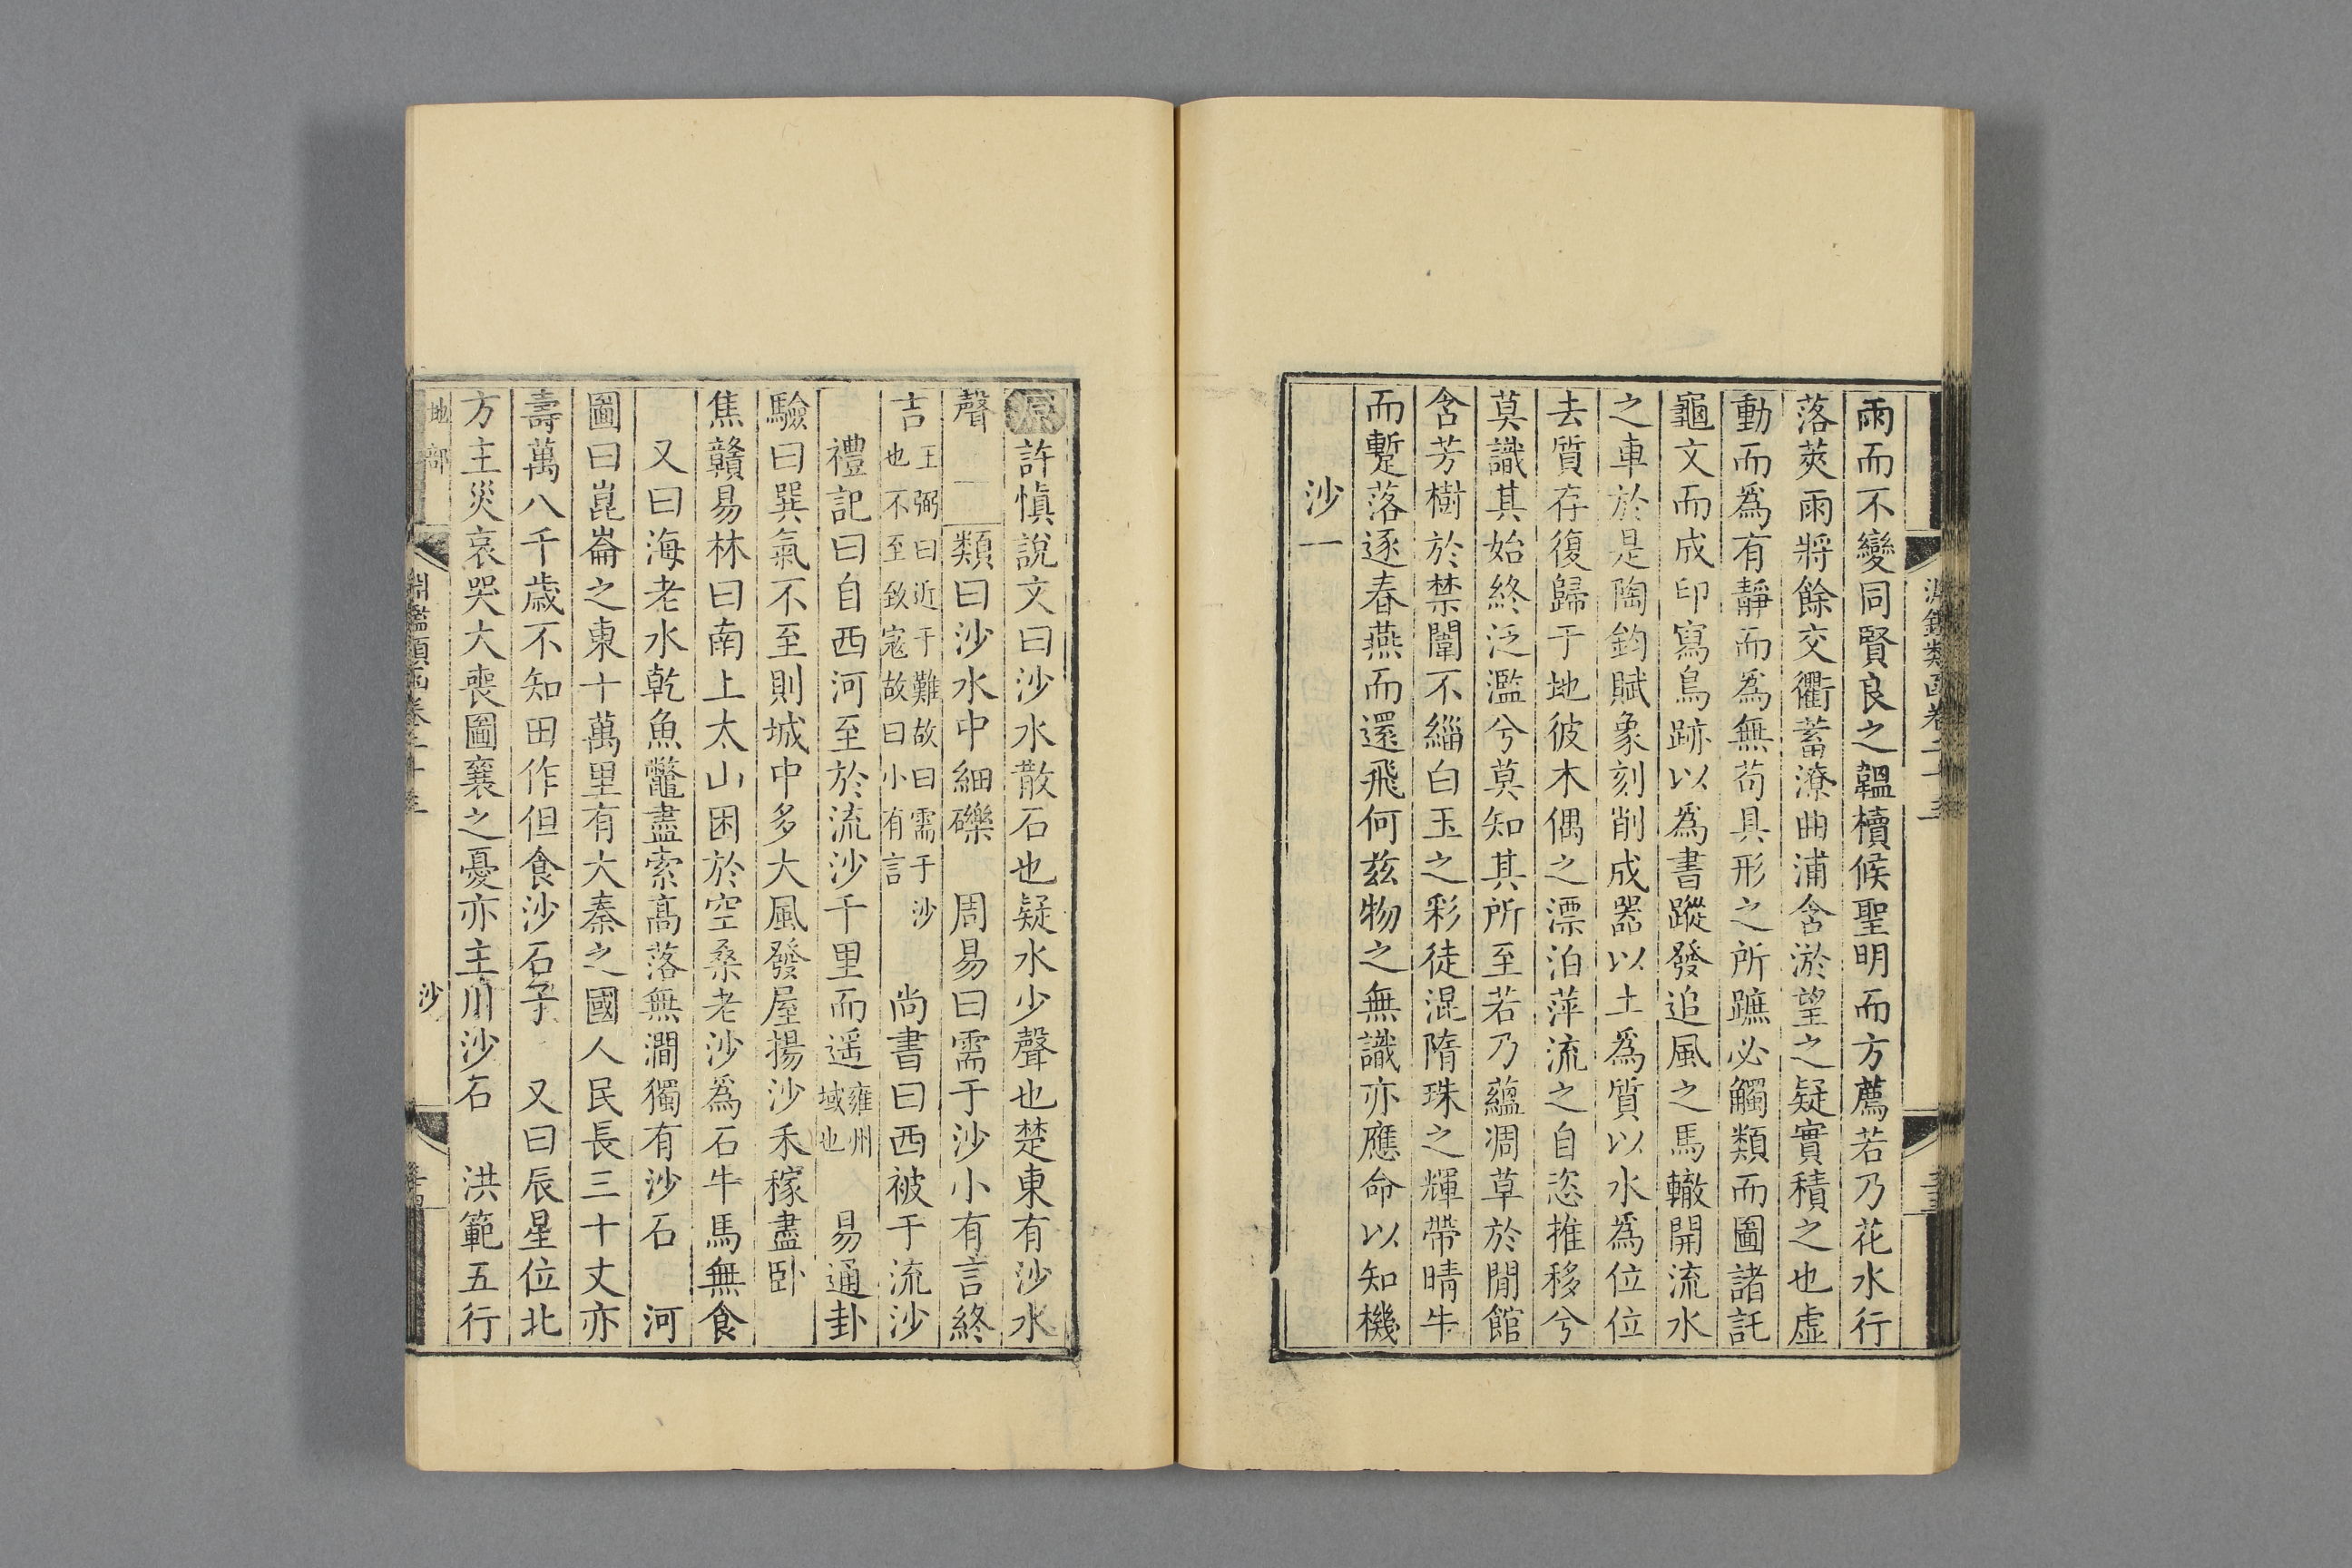 淵鑑類函卷二十三
雨而不變同賢良之韞櫝候聖明而方薦若乃花水行
落莢雨將餘交衢蓄潦曲浦含淤望之疑實積之也虛
動而爲有靜而爲無苟具形之所蹠必觸類而圖諸託
龜文而成印寫鳥跡以爲書蹤發追風之馬轍開流水
之車於是陶鈞賦象刻削成噐以土爲質以水爲位位
去質存復歸于地彼木偶之漂泊萍流之自恣推移兮
莫識其始終泛濫兮莫知其所至若乃蘊凋草於閒館
含芳樹於禁闈不緇白玉之彩徒混隋珠之輝帶晴牛
而蹔落逐春燕而還飛何茲物之無識亦應命以知機
沙一
原許慎說文曰沙水散石也疑水少聲也楚東有沙水
聲類曰沙水中細礫 周易曰需于沙小有言終
吉王弼曰近于難故曰需于沙也不至致寇故曰小有言 尚書曰西被于流沙
禮記曰自西河至於流沙千里而遥雍州域也 易通卦
驗曰巽氣不至則城中多大風發屋揚沙禾稼盡卧
焦贛易林曰南上太山困於空桑老沙爲石牛馬無食
又曰海老水乾魚鼈盡索高落無澗獨有沙石 河
圖曰崑崙之東十萬里有大秦之國人民長三十丈亦
壽萬八千歲不知田作但食沙石子 又曰辰星位北
方主災哀哭大喪圖襄之憂亦主川沙石 洪範五行
地部 淵鑑類函卷二十三 沙